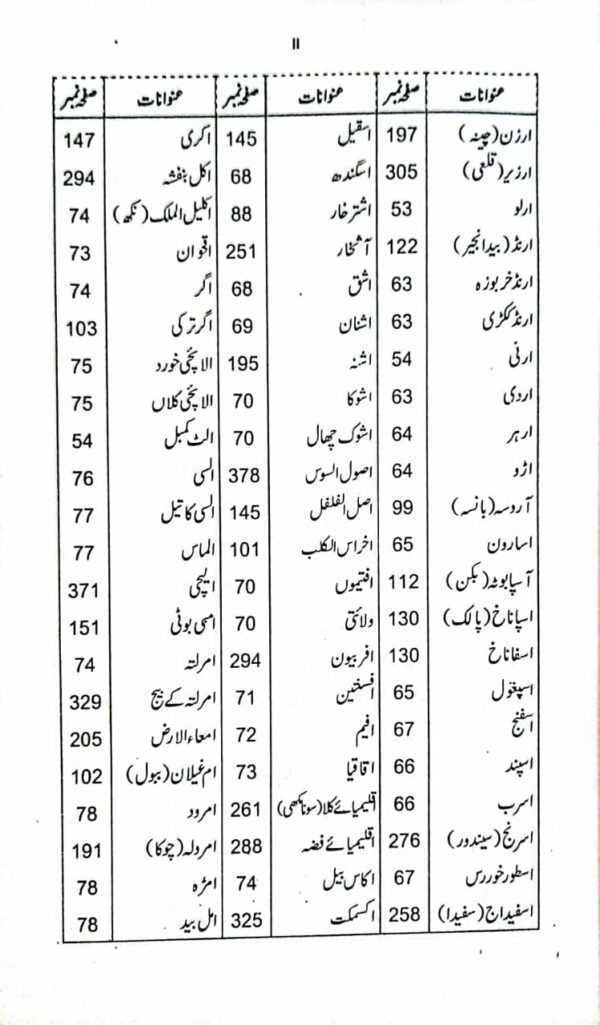 11
عنوانات صفحہ نمبر عنوانات صفحہ نمبر عنوانات صفحہ نمبر
ارزن (چینہ) 197 اسقیل 145 اکری 147
ارزیر (قلعی) 305 اسگندھ 68 اکل بنفشہ 294
ارلو 53 اشترخار 88 اکلیل الملک (نکھ) 74
ارنڈ (بیدانجیر) 122 آشخار 251 اقحوان 73
ارنڈ خربوزہ 63 اشق 68 اگر 74
ارنڈ ککڑی 63 اشنان 69 اگر ترکی 103
ارنی 54 اشنہ 195 الائچی خورد 75
اروی 63 اشوکا 70 الائچی کلاں 75
ارہر 64 اشوک چھال 70 الٹ کمبل 54
اڑو 64 اصول السوس 378 السی 76
آروسہ (بانسہ) 99 اصل الفلفل 145 السی کا تیل 77
اسارون 65 اخراس الکلب 101 الماس 77
آسپابوٹہ (بکن) 112 افتیموں 70 ایلچی 371
اسپاناخ (پالک) 130 ولائتی 70 امسی بوٹی 151
اسفاناخ 130 افربیون 294 امرلتہ 74
اسپغول 65 افسنتین 71 امرلتہ کے بیج 329
اسفنج 67 افیم 72 امعاء الارض 205
اسپند 66 اقاقیا 73 ام غیلان (ببول) 102
اسرب 66 اقلیمیائے کلا (سونا مکھی) 261 امرود 78
اسرنج (سیندور) 276 اقلیمیائے فضہ 288 امرولہ (چوکا) 191
اسطور خوررس 67 اکاس بیل 74 امڑہ 78
اسفیداج (سفیدا) 258 اکسمکت 325 امل بید 78